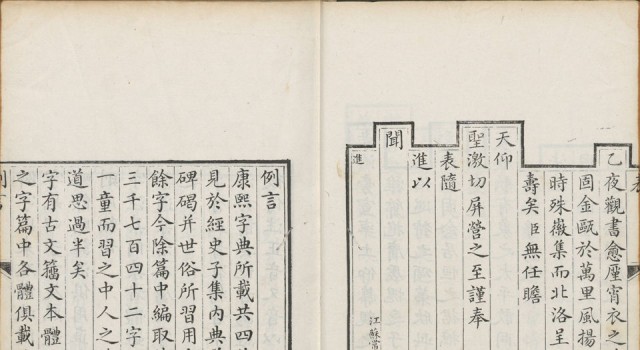 表
乙夜觀書愈廑宵衣之
固金甌於萬里風揚
時殊撤集而北洛呈
壽矣臣無任瞻
天仰
聖激切屏營之至謹奉
表隨
進以
聞
進
江蘇常
例言
康熙字典所載共四
見於經史子集內典
碑碣并世俗所習用
餘字今除篇中編取
三千七百四十二字
一童而習之中人之
道思過半矣
字有古文籀文本體
之字篇中各體俱載
例言